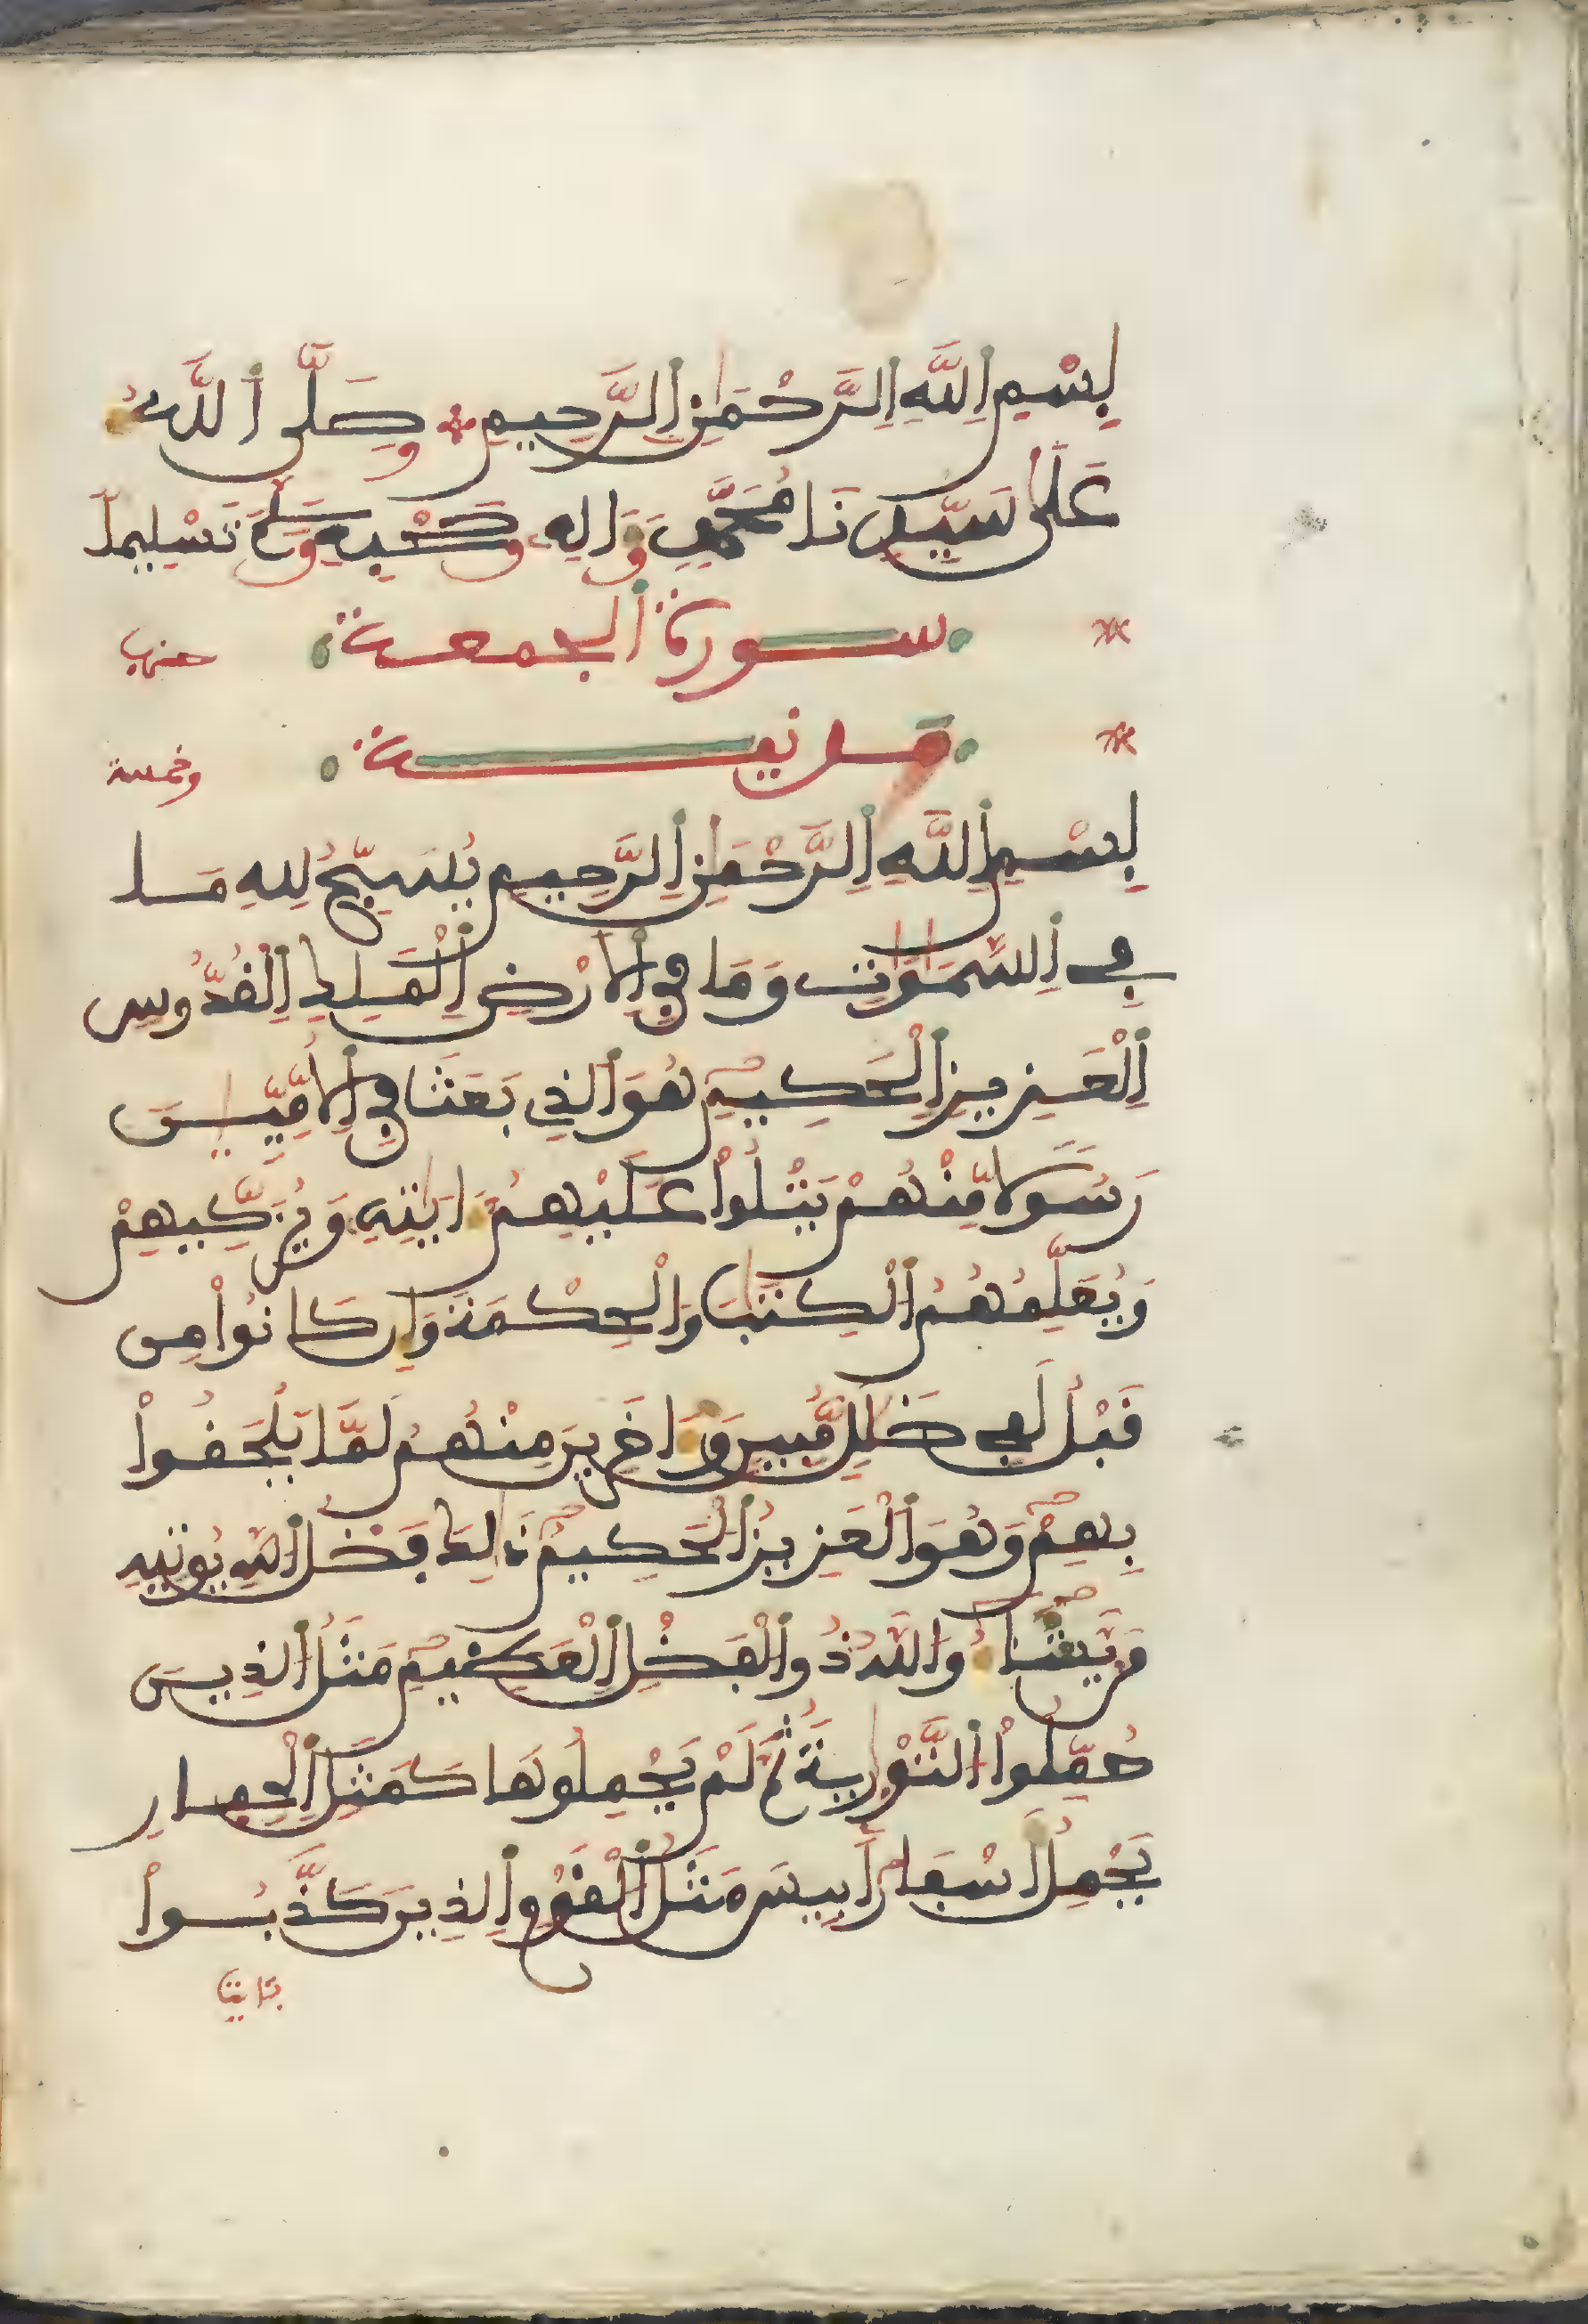 بِسْمِ اِللَّهِ اِلرَّحْمَٰنِ اِلرَّحِيمِ وَصَلَّى أَللَّهُ
عَلَىٰ سَيِّدِنَا مُحَمَّدٍ وَءَالِهِ وَصَحْبِهِ وَسَلَّمَ تَسْلِيماً
سورة الجمعة حزب
مدنية وخمسة
بِسْمِ اِللَّهِ اِلرَّحْمَٰنِ اِلرَّحِيمِ يُسَبِّحُ لِلهِ مَا
فِے اِلسَّمَٰوَٰتِ وَمَا فِي اِلَارْضِ اِلْمَلِكِ اِلْقُدُّوسِ
اِلْعَزِيزِ اِلْحَكِيمِ هُوَ اَلذِي بَعَثَ فِي اِلُامِّيِّـۧنَ
رَسُولًا مِّنْهُمْ يَتْلُواْ عَلَيْهِمُۥ ءَايَٰتِهِ وَيُزَكِّيهِمْ
وَيُعَلِّمُهُمُ اُلْكِتَٰبَ وَالْحِكْمَةَ وَإِن كَانُواْ مِن
قَبْلُ لَفِے ضَلَٰلٍ مُّبِينٍ وَءَاخَرِينَ مِنْهُمْ لَمَّا يَلْحَقُواْ
بِهِمْ وَهُوَ اَلْعَزِيزُ اُلْحَكِيمُ ذَٰلِكَ فَضْلُ اُللَّهِ يُوتِيهِ
مَنْ يَّشَآءُ وَاللَّهُ ذُو اُلْفَضْلِ اِلْعَظِيمِ مَثَلُ اُلذِينَ
حُمِّلُواْ اُلتَّوْرَىٰةَ ثُمَّ لَمْ يَحْمِلُوهَا كَمَثَلِ اِلْحِمَارِ
يَحْمِلُ أَسْفَاراً بِيسَ مَثَلُ اُلْقَوْمِ اِلذِينَ كَذَّبُواْ
بـَٔايَٰت